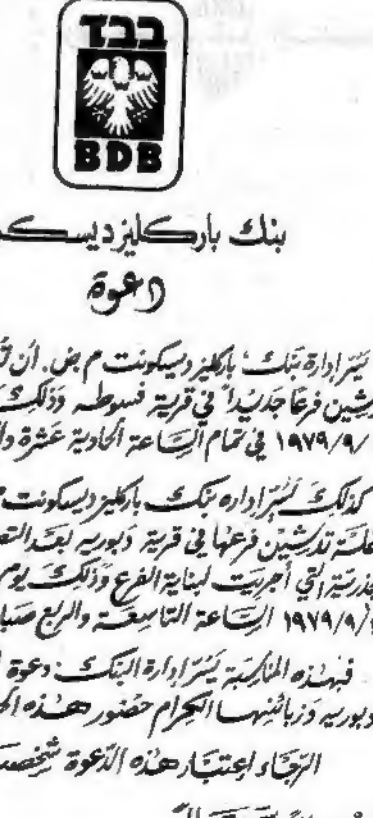 בבד
BDB
بنك باركليز ديسكـ
دعوة
يَسُرّ إدارة بَنك باركليز ديسكونت م.ض. أن
تدشين فرعاً جَديداً في قرية فسوطه وَذلِكَ
١٩٧٩/٩/ في تمام السَّاعة الحادية عَشرة وال
كذلكَ يَسُرّ إداره بنك باركليز ديسكونت م
حفلة تدشين فرعها في قرية دَبوريه بعد التص
جذريّة التي أجريَت لبناية الفرع وَذلِكَ يوم
١٩٧٩/٩/ السَّاعة التاسِعَة والربع صَبا
فبهذه المناسَبة يَسُرّ إدارة البنك دعوة
ودبوريه وَزبائنها الكِرام حضُور هذه الح
الرّجَاء اعتبَار هذه الدّعوة شخصيَـ